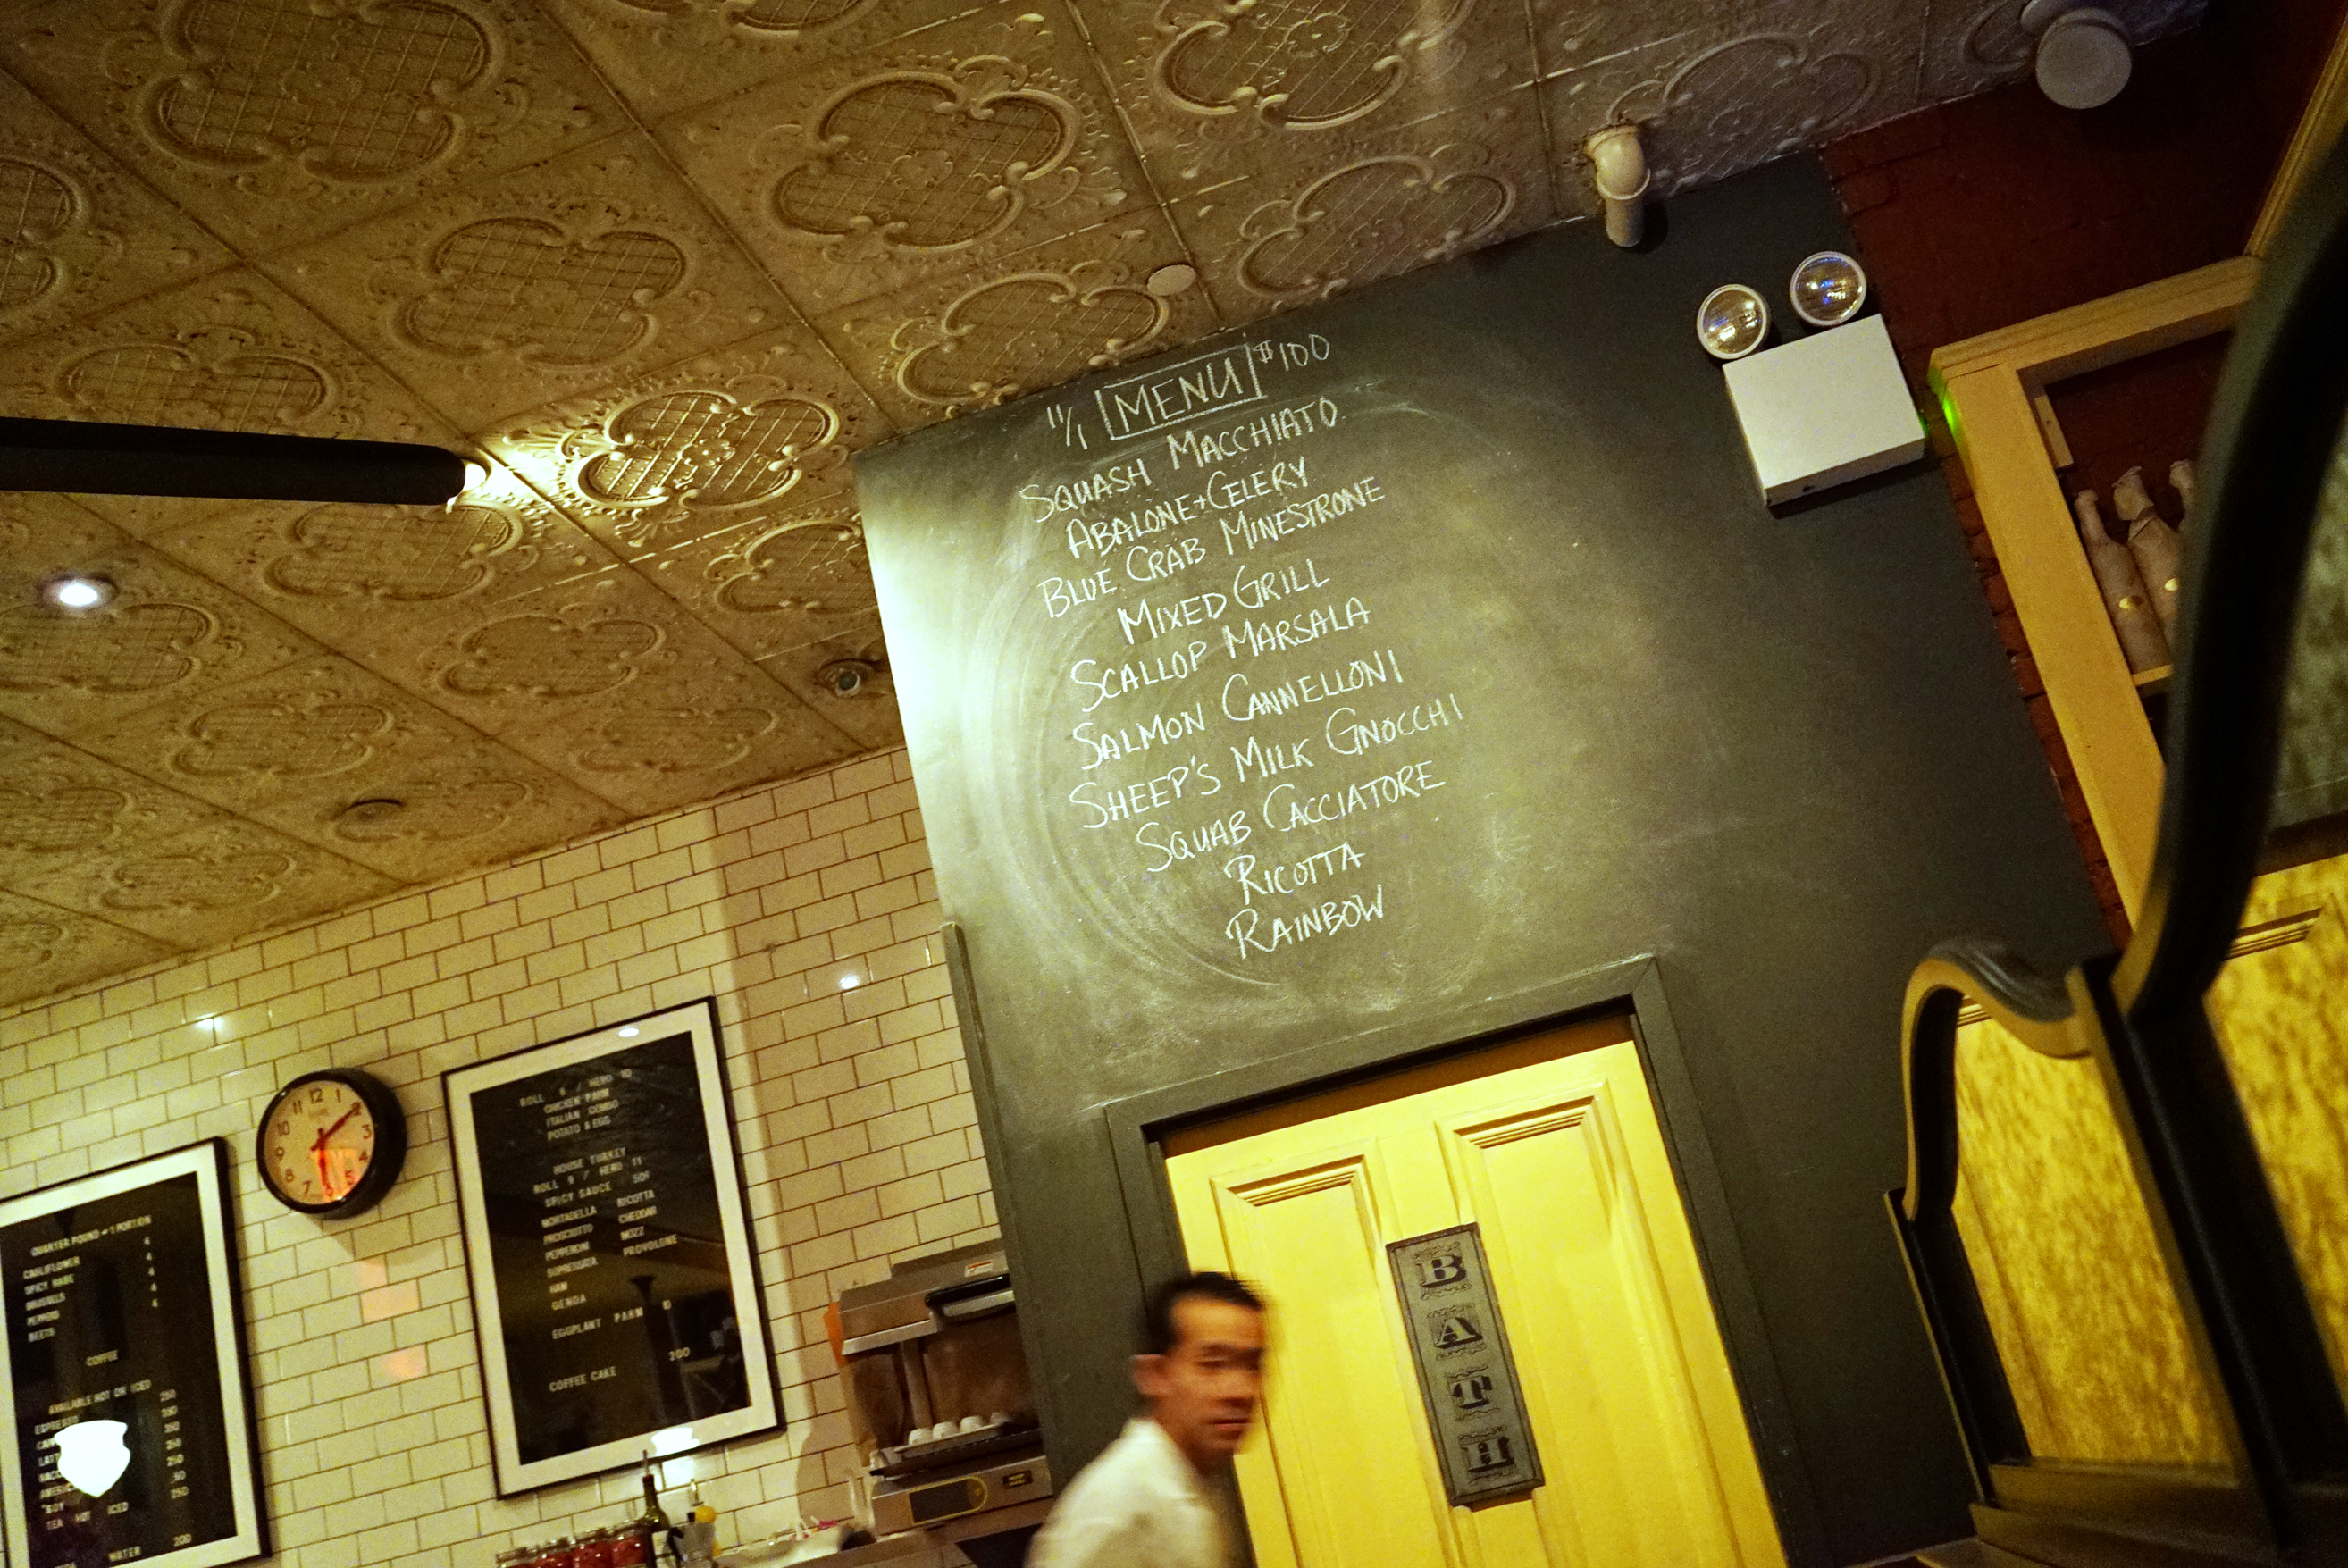 11/1 MENU $100
SQUASH MACCHIATO
ABALONE + CELERY
BLUE CRAB MINESTRONE
MIXED GRILL
SCALLOP MARSALA
SALMON CANNELLONI
SHEEP'S MILK GNOCCHI
SQUAB CACCIATORE
RICOTTA
RAINBOW
11 12 1 2 3 4 5 6 7 8 9 10
ROLL / HERO 10
CHICKEN PARM
ITALIAN COMBO
POTATO & EGG
HOUSE TURKEY
ROLL 9 / HERO 11
SPICY SAUCE 50¢
MORTADELLA RICOTTA
PROSCIUTTO CHEDDAR
PEPPERONI MOZZ
SOPRESSATA PROVOLONE
HAM
GENOA
EGGPLANT PARM 10
COFFEE CAKE 200
QUARTER POUND = 1 PORTION
CAULIFLOWER 4
SPICY RABE 4
BRUSSELS 4
PEPPERS 4
BEETS 4
COFFEE
AVAILABLE HOT OR ICED
ESPRESSO 250
TEA HOT ICED 250
WATER 200
BATH